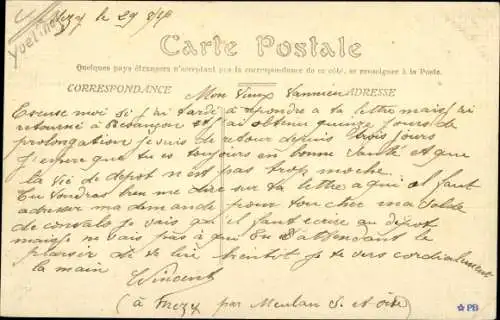 Mezy le 29
Yvelines
Carte Postale
Quelques pays étrangers n'acceptant pas la correspondance de ce côté, se renseigner à la Poste.
CORRESPONDANCE ADRESSE
Mon Vieux Vannier
Excuse moi si j'ai tardé a repondre a ta lettre mais j'ai
retourné à Besançon et j'ai obtenu quinze jours de
prolongation je suis de retour depuis trois jours
J'espere que tu es toujours en bonne santé et que
la vie de depot n'est pas trop moche.
Tu voudras bien me dire sur ta lettre a qui il faut
adresser ma demande pour toucher ma solde
de convalo je vais qu'il faut ecrire au dépot
mais je ne vais pas à qui En attendant le
plaisir de te lire bientot je te sers cordialement
la main
Vincent
(à Mezy par Meulan S. et Oise)
PB